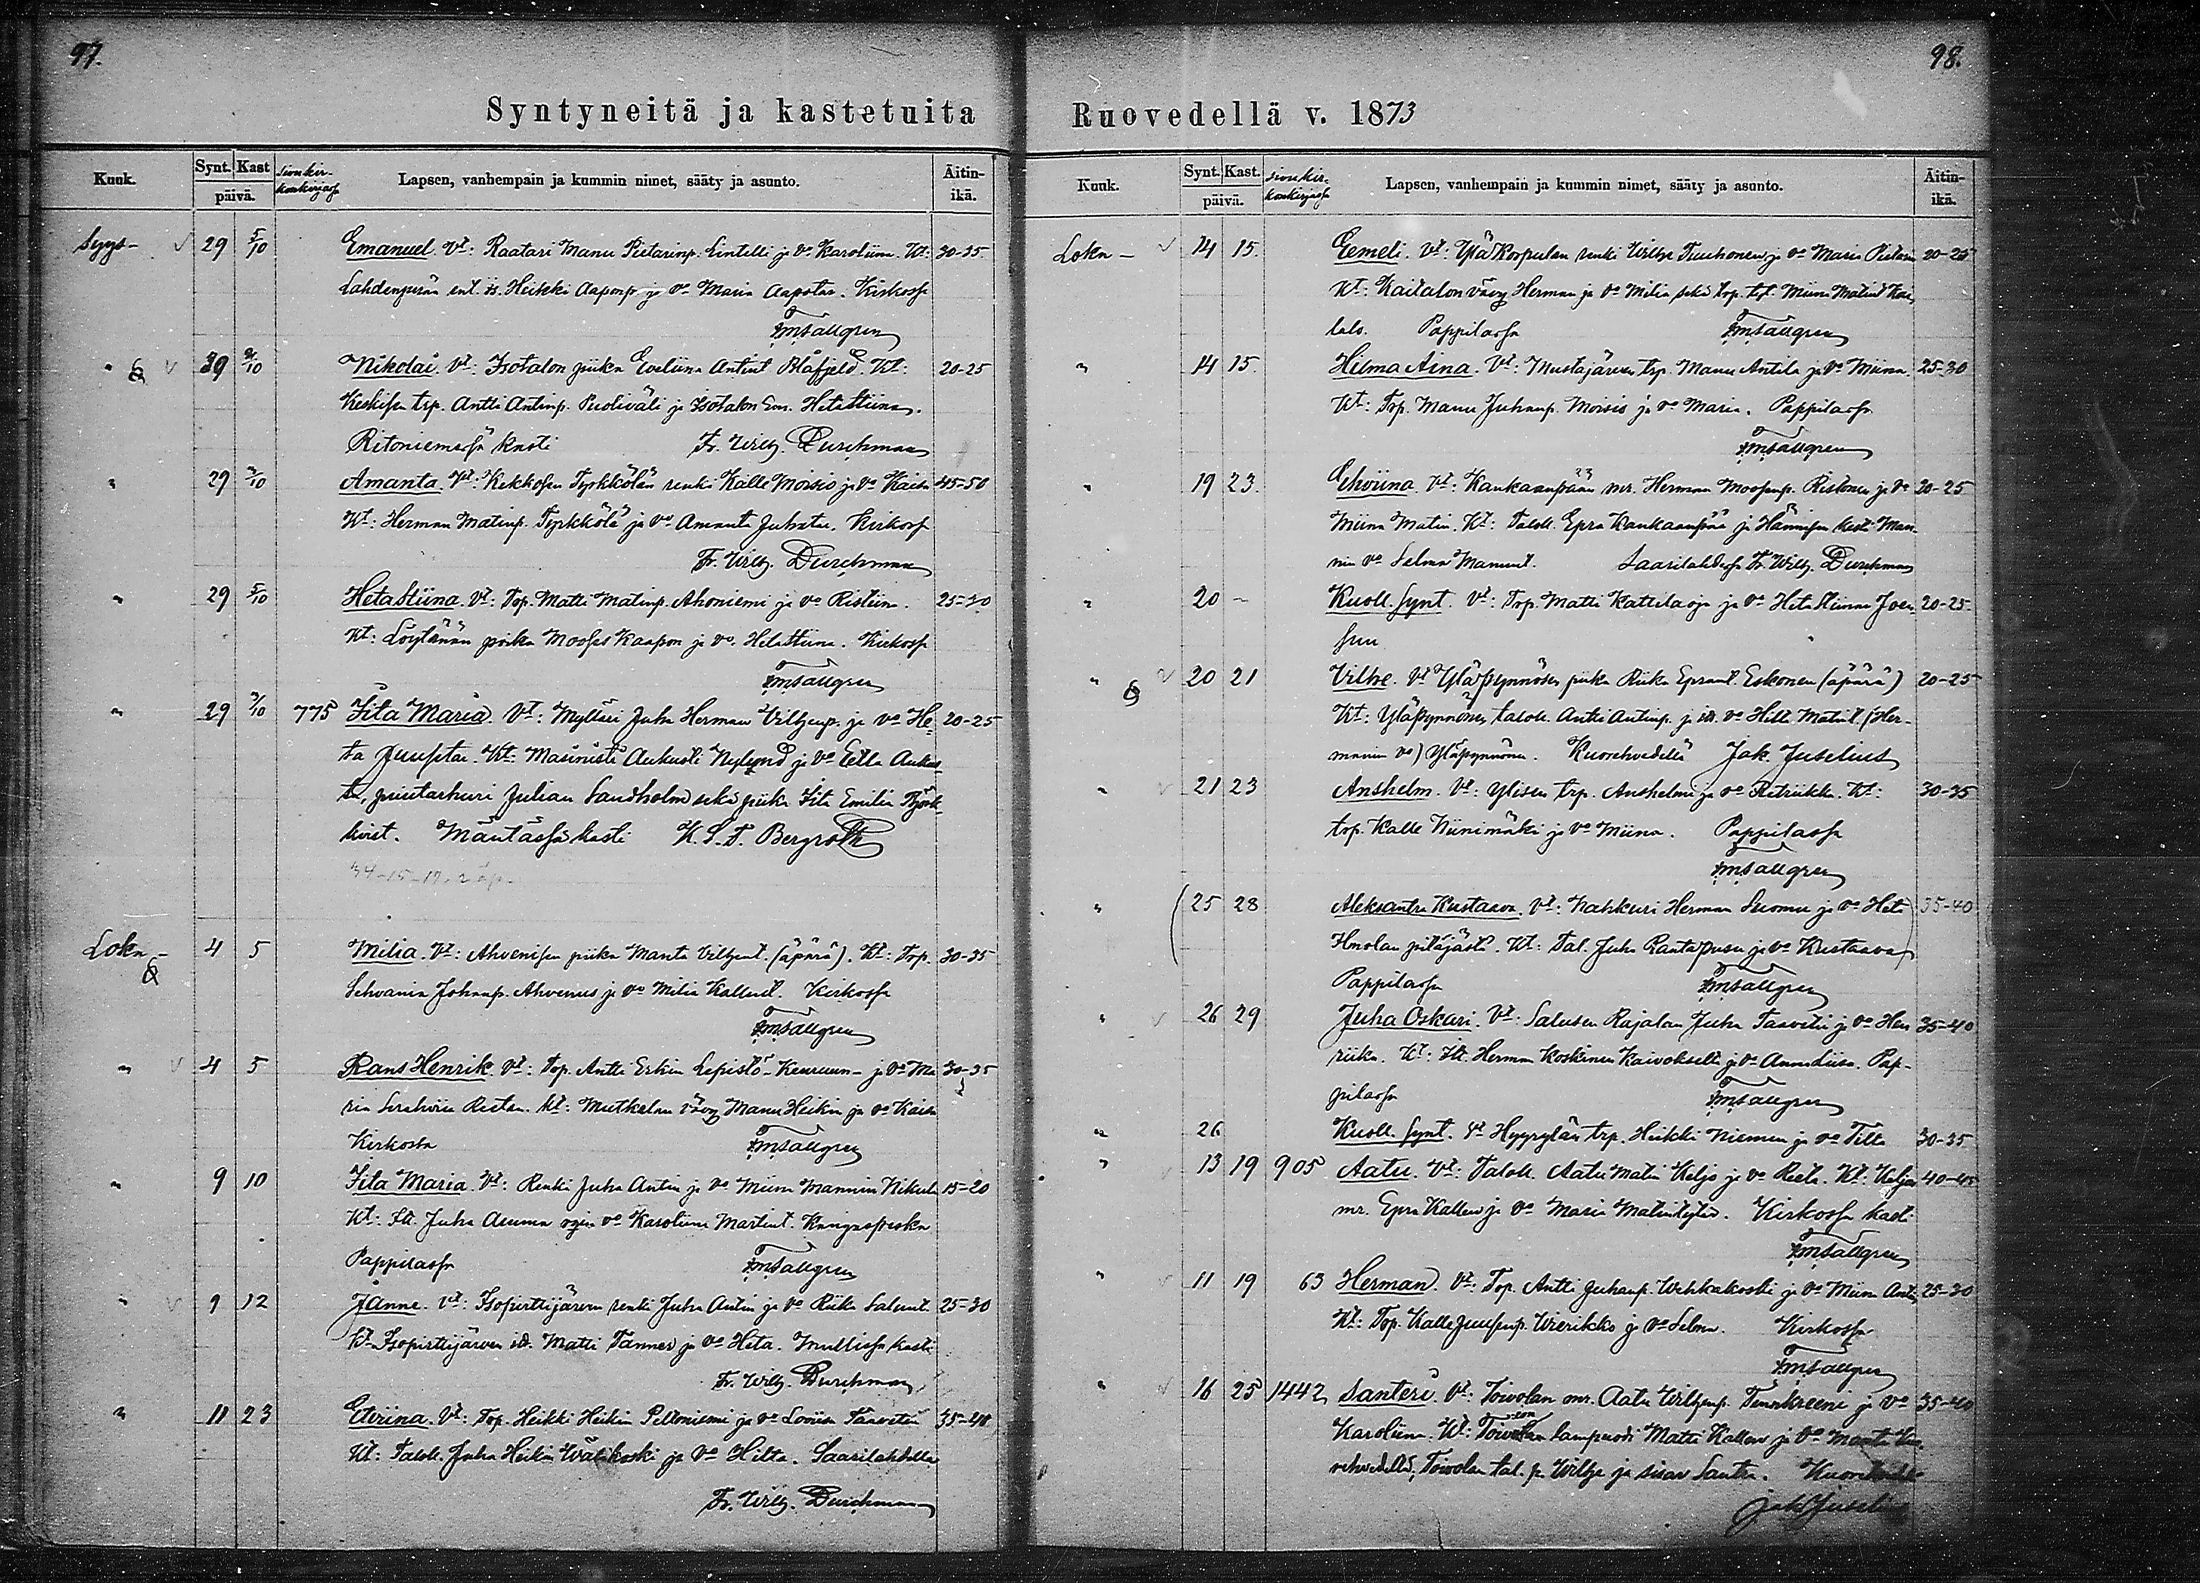 97.
Syntyneitä ja kastetuita
Kuuk. Synt. Kast päivä. Sivu kirkonkirjassa Lapsen, vanhempain ja kummin nimet, sääty ja asunto. Äitin-ikä.
Syys- 29 5/10 Emanuel. Vt: Raatari Manu Pietarinp. Lintelli ja Vo Karoliina. Kt: 30-35.
Lahdenperän ent. is. Heikki Aaponp. ja Vo Maria Aapotar. Kirkossa
FmSallgren
" 30 /10 Nikolai. Vt: Isotalon piika Eveliina Antint. Blåfjeld. Kt: 20-25
Keskisen trp. Antti Antinp. Puoliväli ja Isotalon Em. Heta Stiina.
Ritoniemessä kasti Fr. Wilh. Durchman
" 29 /10 Amanta. Vt: Kekkosen Tyrkkölän renki Kalle Moisio ja Vo Kaisa 45-50
Kt: Herman Matinp. Tyrkkölä ja Vo Amanta Juhatar. Kirkossa
Fr. Wilh. Durchman
" 29 5/10 Heta Stiina. Vt: Trp. Matti Matinp. Ahoniemi ja Vo Ristiina. 25-30
Kt: Löytänän poika Mooses Kaapon ja Vo. Heta Stiina. Kirkossa
FmSallgren
" 29 /10 775 Fita Maria. Vt: Mylläri Juha Herman Viltzenp. ja Vo He- 20-25
ta Juuptar. Kt: Masinisti Aukusti Nylund ja Vo Eetla Aukus-
ta, puutarhuri Julian Sandholm sekä piika Fita Emilia Björk-
kvist. Mäntässä kasti K. S. T. Bergroth
Loka- 4 5 Milia. Vt: Ahvenisen piika Manta Viltzent. (äpärä). Kt: Trp. 30-35
Sehvania Johanp. Ahvenus ja Vo Milia Kallent. Kirkossa
FmSallgren
" 4 5 Rans Henrik. Vt: Trp. Antti Erkin Lepistö - Keuruun - ja Vo Ma- 30-35
ria Serahviia Ristar. Kt: Mutkalan vävy Manu Heikin ja Vo Kaisa
Kirkossa FmSallgren
" 9 10 Fita Maria. Vt: Renki Juha Antin ja Vo Miina Mannin Nikula 15-20
Kt: Itl. Juha Asuma ojan Vo Karoliina Martint.
Pappilassa FmSallgren
" 9 12 Janne. Vt: Isopirttijärven renki Juha Antin ja Vo Riika Salunt. 25-30
Kt: Isopirttijärven is. Matti Fannes ja Vo Heta. kasti
Fr. Wilh. Durchman
" 11 23 Eteriina. Vt: Trp. Heikki Heikin Peltoniemi ja Vo Loviisa Taavetin 35-40
Kt: Taloll. Juha Heikin Wäläkoski ja Vo Hilta. Saarilahdella
Fr. Wilh. Durchman
98.
Ruovedellä v. 1873
Kuuk. Synt. Kast. päivä. Sivu kirkonkirjassa Lapsen, vanhempain ja kummin nimet, sääty ja asunto. Äitin-ikä.
Loka- 14 15. Eemeli. Vt: Yliä Korpulan renki Wiltze Tuuhonen ja Vo Maria Pietarin 20-25
Kt: Kaitalon vävy Herman ja Vo Milia sekä trp. tyt. Miina Matint Kai-
talo. Pappilassa FmSallgren
" 14 15. Hilma Aina. Vt: Mustajärven trp. Manu Antila ja Vo Miina. 25-30
Kt: Trp. Manu Juhanp. Moisio ja Vo Maria. Pappilassa
FmSallgren
" 19 23. Ehviina. Vt: Kankaanpään mr. Herman Moosenp. Ristonen ja Vo 20-25
Miina Matin. Kt: Taloll. Epra Kankaanpää ja Hännisen kest. Man-
nin Vo Selma Manunt. Saarilahdessa Fr. Wilh. Durchman
" 20 - Kuoll. Synt. Vt: Trp. Matti Kattilaoja ja Vo Heta Stiina Joen- 20-25.
suu
" 20 21 Vilhe. Vt Yläpynnösen piika Riika Eprant. Eskonen (äpärä) 20-25
Kt: Yläpynnönen taloll. Antti Antinp. ja is. Vo Hilta Matint. (Her-
mannin Vo) Yläpynnönen. Kuorehvedellä Jak. Juselius
" 21 23 Anshelm. Vt: Ylisen trp. Anshelmi ja Vo Retriikka. Kt: 30-35
trp. Kalle Niinimäki ja Vo Miina. Pappilassa
FmSallgren
" 25 28 Aleksantra Kustaava. Vt: Nahkuri Herman Suoma ja Vo Heta 35-40
pitäjästä. Kt: Tal. Juha Rantapusu ja Vo Kustaava
Pappilassa FmSallgren
" 26 29 Juha Oskari. Vt: Salusen Rajalan Juha Taavetin ja Vo Hen- 35-40
riika. Kt: Itl. Herman Koskinen Kaivokselta ja Vo Anna Liisa. Pap-
pilassa FmSallgren
" 26 Kuoll. Synt. Vt Hyyrylän trp. Heikki Niemen ja Vo Tilta 30-35
" 13 19 905 Aatu. Vt: Taloll. Aatu Matin Keljo ja Vo Reeta. Kt: Keljon 40-45
mr. Epra Kallen ja Vo Maria Matintytär. Kirkossa kasti
FmSallgren
" 11 19 63 Herman. Vt: Trp. Antti Juhanp. Wehkakoski ja Vo Miina Antin 25-30
Kt: Trp. Kalle Juusenp. Wierikko ja Vo Selma. Kirkossa
FmSallgren
" 16 25 1442 Santeri. Vt: Toivolan mr. Aatu Wiltzenp. ja Vo 35-40
Karoliina. Kt: Toivolan lampuodi Matti Kallen ja Vo Manta Kuo-
rehvedellä, Toivolan tal. p. Wiltze ja sisar Santra.
Jak Juselius